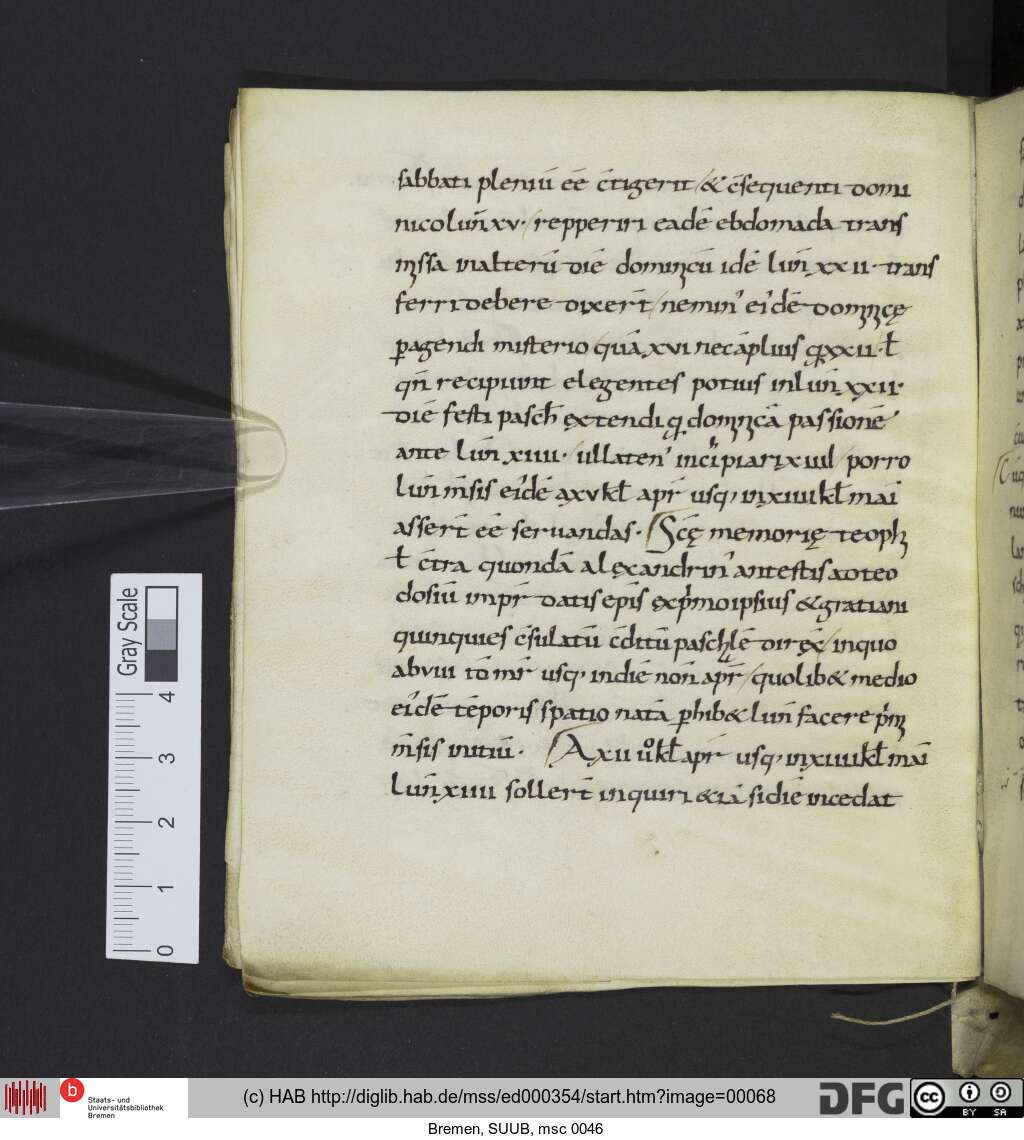 sabbati pleniū eē c̄tigerit / & c̄sequenti domi
nico lun̄ xv · / repperiri eadē ebdomada trans
mssa in alterū diē dominicū idē lun̄ xxii · trans
ferri debere dixer̄t / nemin' ei'dē dominicę
ꝑagendi misterio / quā xvi nec āplius qͣ xxii · ł
qn̄ recipiunt elegentes potius in lun̄ xxii ·
diē festi pasch̄ extendi qͣ dominicā passionē
ante lun̄ xiiii · ullaten' incipiari xiiii / porro
lun̄ m̄sis ei'dē a xv kł apr̄ usq, in xiiii kł mai
asser̄t eē seruandas · Scę memorię teoph
ł c̄tra quondā alexandrin' antestis ad teo
dosiū impr̄ datis epīs ex p'mo ipsius & gratiani
quinquies c̄sulatū c̄ditū paschlē direx̄ / in quo
ab viii id mr̄ usq, in diē non̄ apr̄ / quo lib& medio
ei'dē tēporis spatio natā ꝑhib& lun̄ facere p'm
m̄sis initiū · A xii u° kł apr̄ usq, in xiiii kł mai
lun̄ xiiii soller̄t inquiri & iā si diē incedat
Gray Scale
4
3
2
1
0
b
Staats- und
Universitätsbibliothek
Bremen
(c) HAB http://diglib.hab.de/mss/ed000354/start.htm?image=00068
DFG
cc
BY SA
Bremen, SUUB, msc 0046